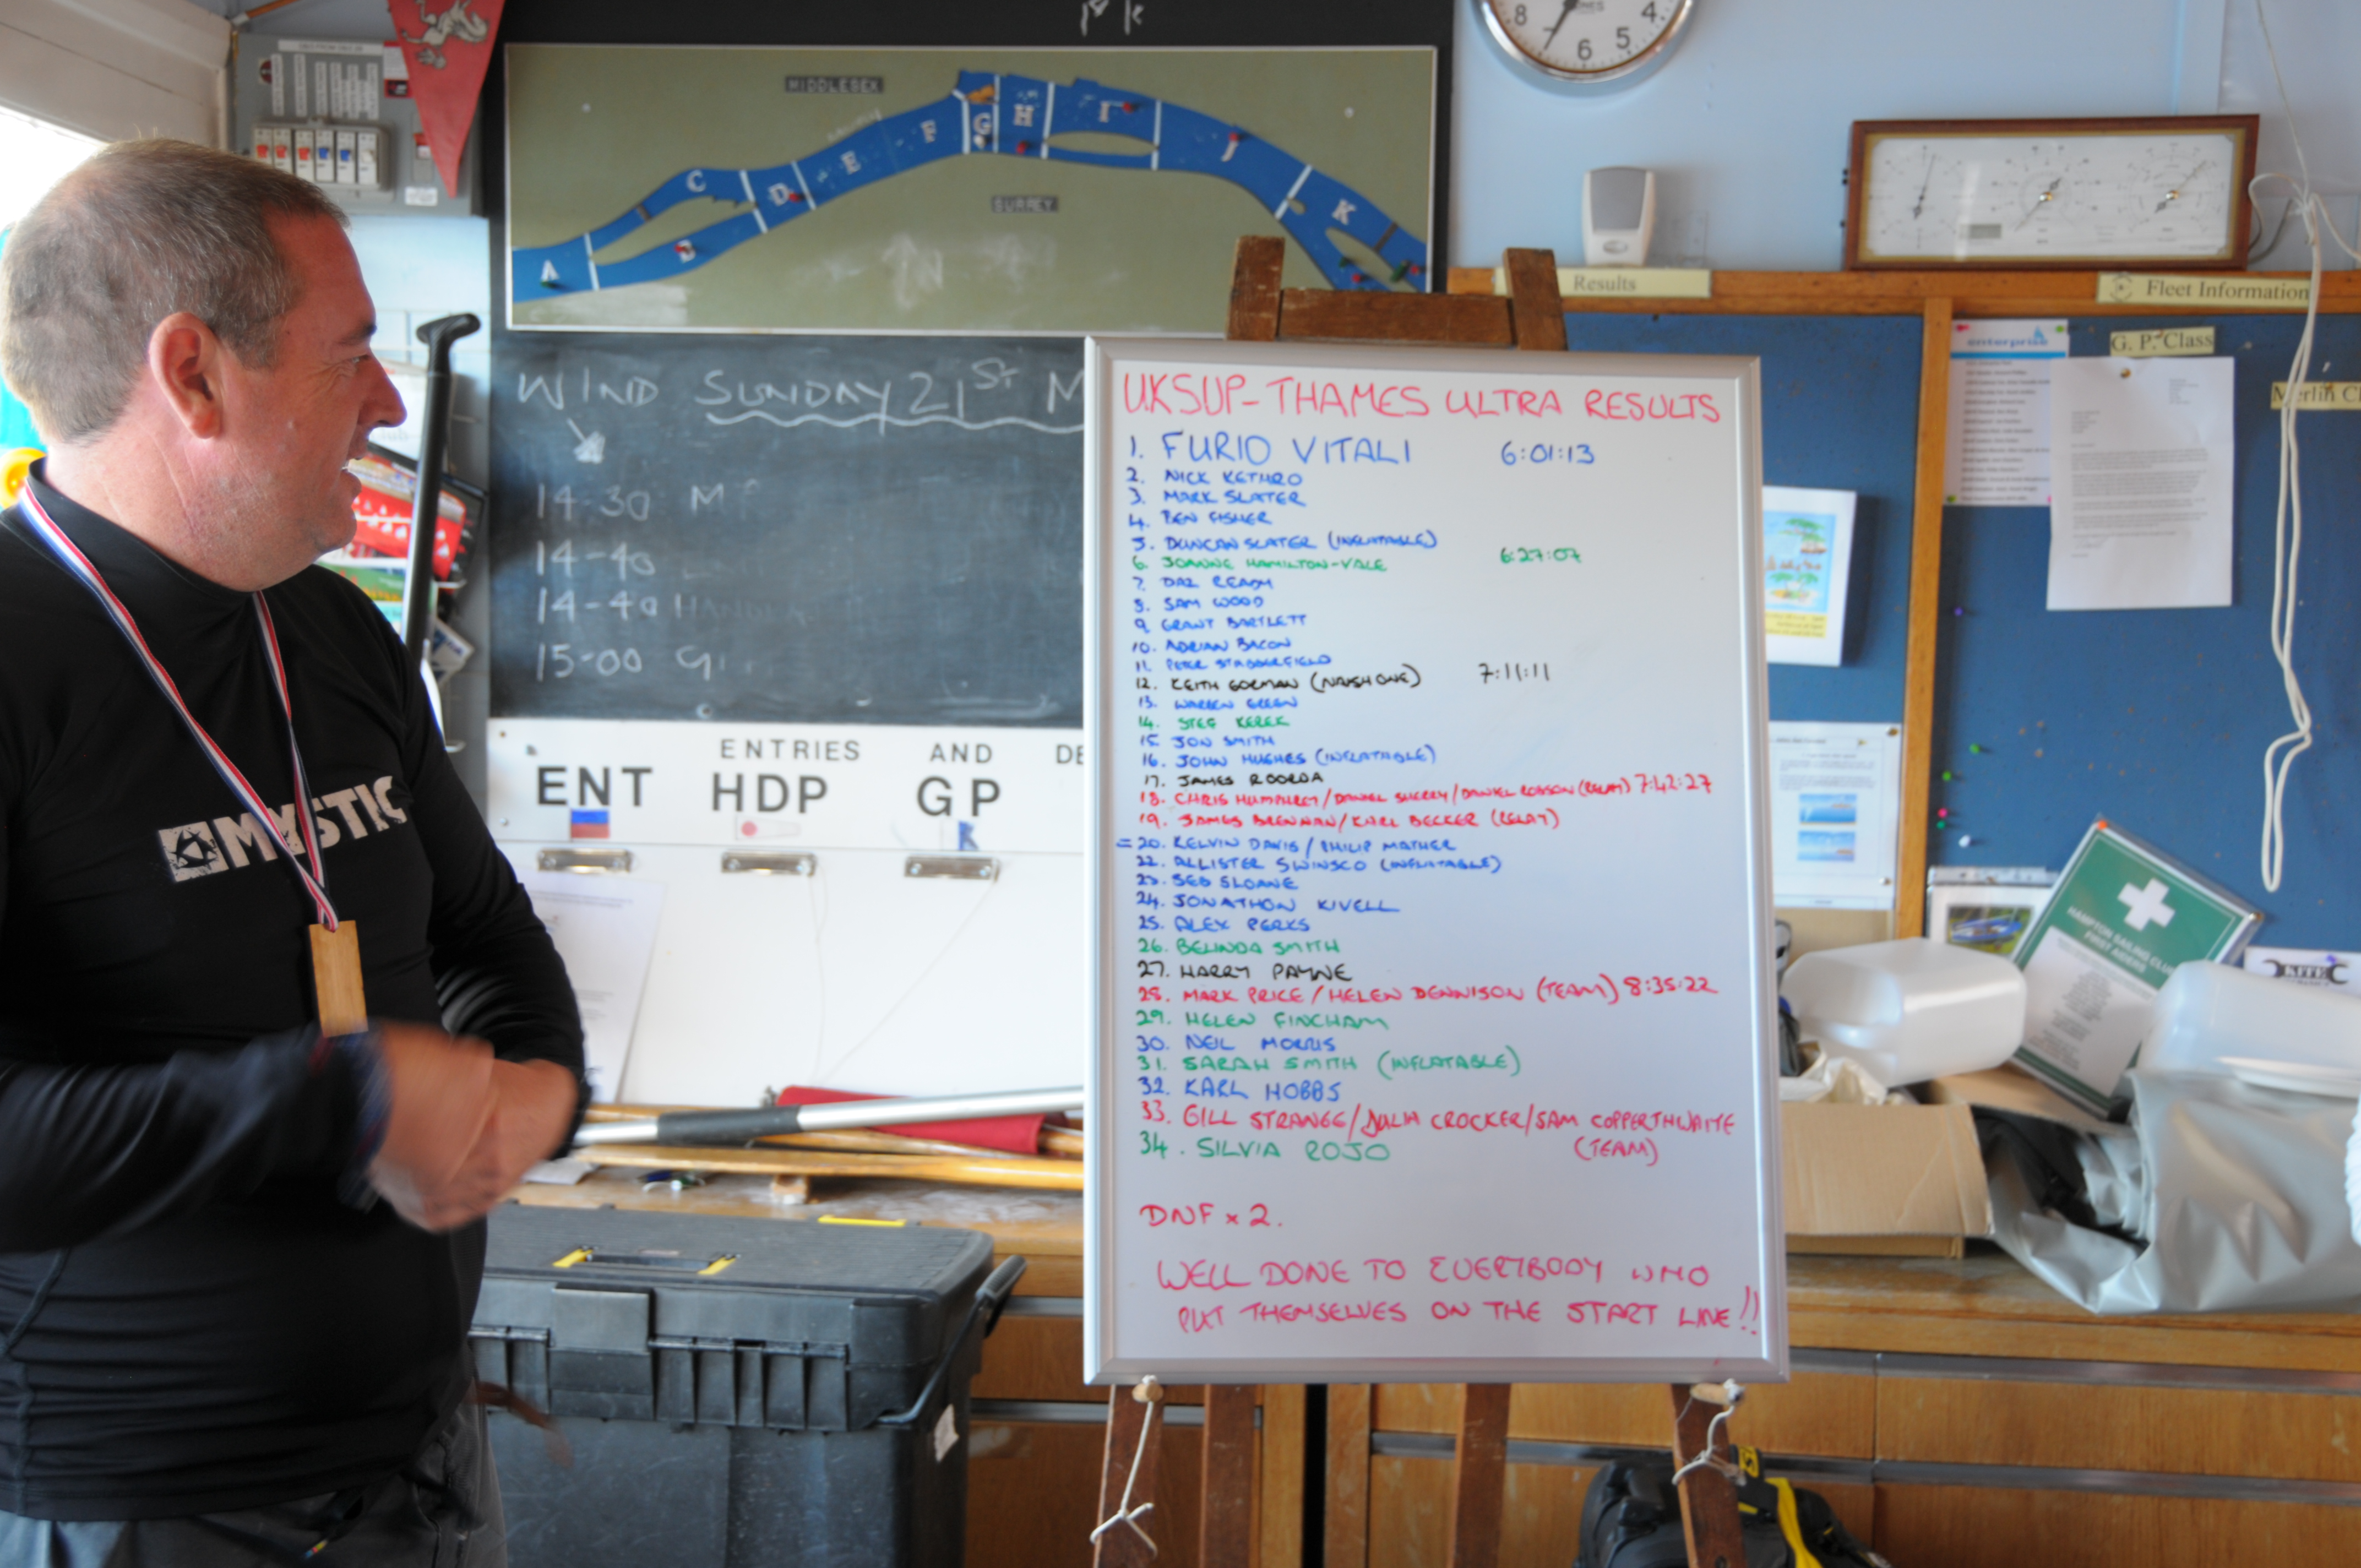 MIDDLESEX
A
B
C
D
E
F
G
H
I
J
K
SURREY
8
6
5
4
WIND SUNDAY 21ST M
14-30 M
14-40
14-40 HAND
15-00 G
ENTRIES AND DE
ENT HDP GP
MYSTIC
Results
Fleet Information
enterprise
G. P. Class
Merlin C
HAMPTON SAILING CLUB
FIRST AIDERS
KITE
UKSUP-THAMES ULTRA RESULTS
1. FURIO VITALI 6:01:13
2. NICK KETHRO
3. MARK SLATER
4. BEN FISHER
5. DUNCAN SLATER (INFLATABLE)
6. JOANNE HAMILTON-VALE 6:27:07
7. DAZ READY
8. SAM WOOD
9. GRANT BARTLETT
10. ADRIAN BACON
11. PETER STADDERFIELD
12. KEITH GORMAN (NAISH ONE) 7:11:11
13. WARREN GREEN
14. STEF KEREK
15. JON SMITH
16. JOHN HUGHES (INFLATABLE)
17. JAMES ROORDA
18. CHRIS HUMPHREY/DANIEL SHERRY/DANIEL ROBSON (RELAY) 7:42:27
19. JAMES BRENNAN/KARL BECKER (RELAY)
=20. KELVIN DAVIS/PHILIP MATHER
22. ALLISTER SWINSCO (INFLATABLE)
23. SEB SLOANE
24. JONATHON KIVELL
25. ALEX PERKS
26. BELINDA SMITH
27. HARRY PAYNE
28. MARK PRICE/HELEN DENNISON (TEAM) 8:35:22
29. HELEN FINCHAM
30. NEIL MORRIS
31. SARAH SMITH (INFLATABLE)
32. KARL HOBBS
33. GILL STRANGE/JULIA CROCKER/SAM COPPERTHWAITE
(TEAM)
34. SILVIA ROJO
DNF x 2.
WELL DONE TO EVERYBODY WHO
PUT THEMSELVES ON THE START LINE!!